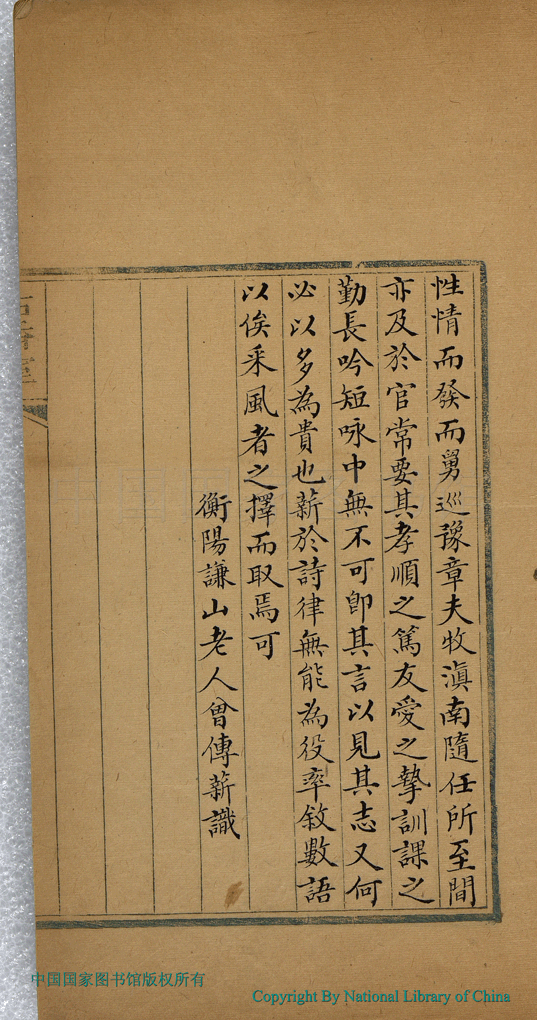 性情而發而舅巡豫章夫牧滇南隨任所至間
亦及於官常要其孝順之篤友愛之摯訓課之
勤長吟短咏中無不可卽其言以見其志又何
必以多為貴也薪於詩律無能為役率敘數語
以俟采風者之擇而取焉可
衡陽謙山老人曾傳薪識
中国国家图书馆版权所有
Copyright By National Library of China